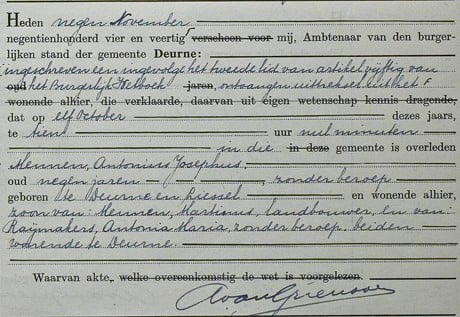 Heden negen November
negentienhonderd vier en veertig verscheen voor mij, Ambtenaar van den burger-
lijken stand der gemeente Deurne:
ingeschreven een ingevolge het tweede lid van artikel vijftig van
oud het Burgerlijk Wetboek jaren, ontvangen uittreksel uit het
wonende alhier, die verklaarde, daarvan uit eigen wetenschap kennis dragende,
dat op elf October dezes jaars,
te tien uur nul minuten
in die in deze gemeente is overleden
Mennen, Antonius Josephus,
oud negen jaren, zonder beroep
geboren te Deurne en Liessel en wonende alhier,
zoon van: Mennen, Martinus, landbouwer, en van:
Raijmakers, Antonia Maria, zonder beroep, beiden
wonende te Deurne.
Waarvan akte, welke overeenkomstig de wet is voorgelezen.